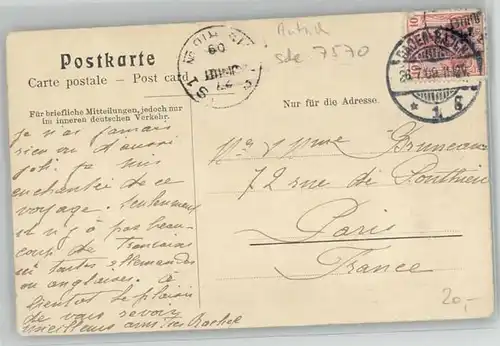 Postkarte
Carte postale – Post card
Für briefliche Mitteilungen, jedoch nur
im inneren deutschen Verkehr.
Nur für die Adresse.
sde 7570
BADEN-BADEN
* 1 g
je n'ai jamais
rien vu d'aussi
joli je suis
enchantée de ce
voyage. Seulement
il n'y a pas beau-
coup de Français
tantes allemandes
ou anglaises. à
bientot le plaisir
de vous revoir
meilleurs amitiés Rachel
Mr & Mme Bruneau
72 rue de Ponthieu
Paris
France
20,-